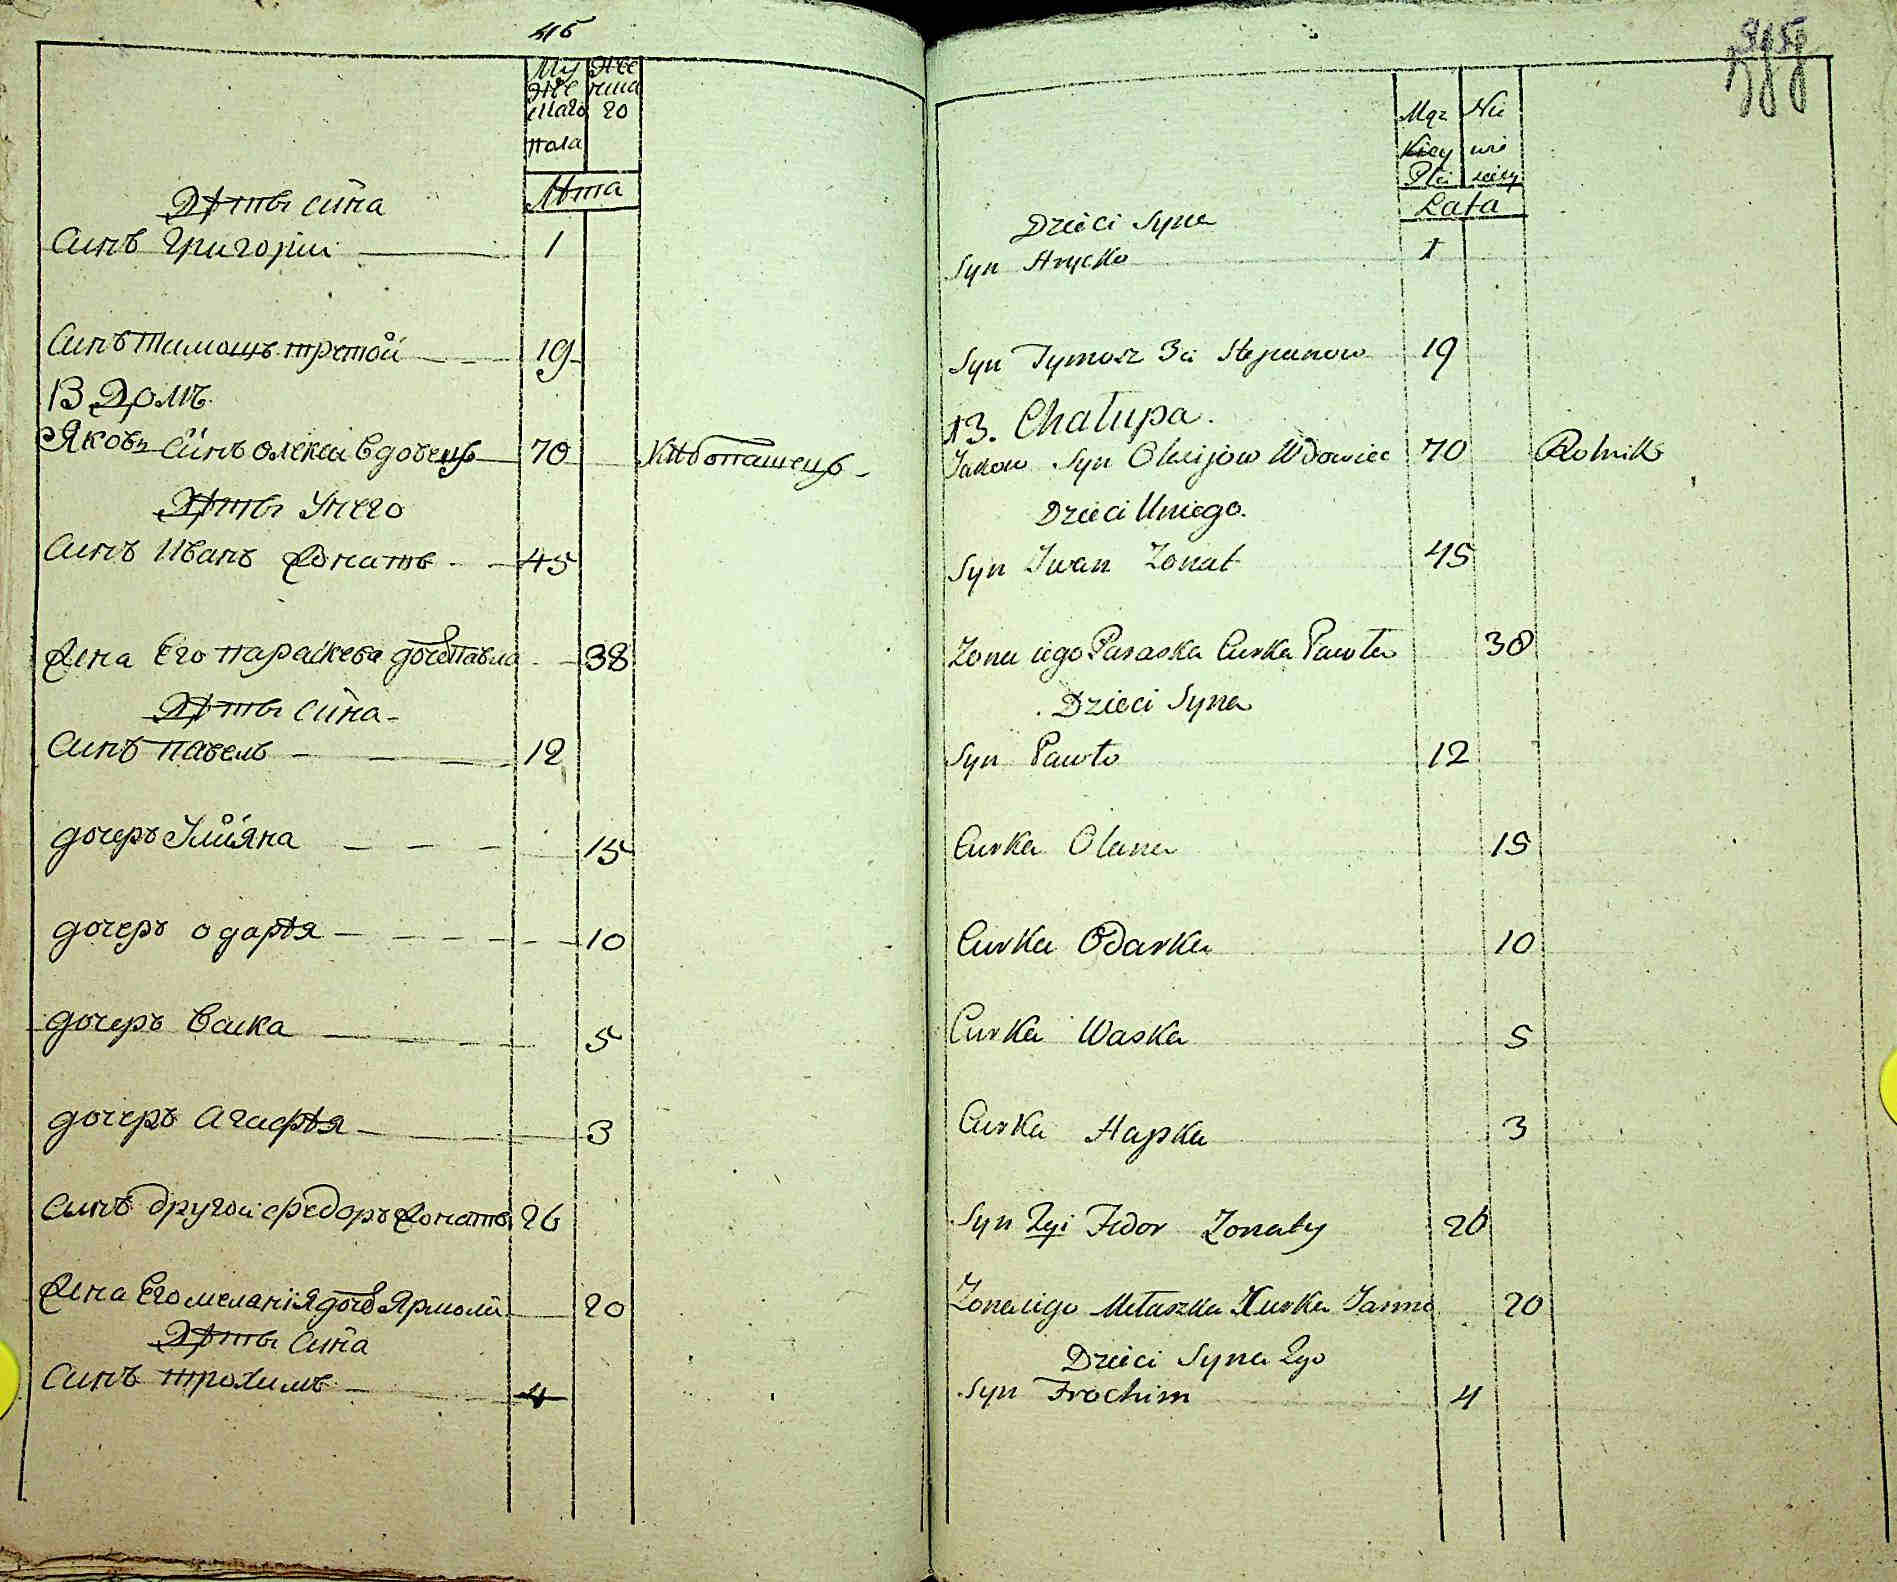 Му
Же
Же
ска
скаго
го
пола
Лѣта
Дѣты сина
Синъ Григорій 1
Синъ Тимошъ третой 19
13 Домъ
Яковъ Синъ Олекси Вдовецъ 70 Хлѣбопашецъ
Дѣты Унего
Синъ Иванъ Жонатъ 45
Жена Его параскева дочь Павла 38
Дѣты сина
Синъ павель 12
дочеръ Улияна 15
дочеръ одарѣя 10
дочеръ Васка 5
дочеръ Агафѣя 3
Синъ другой Федоръ Жонатъ 26
Жена Его меланія дочь Ярмоли 20
Дѣты Сина
Синъ трохимъ 4
Męz Nie
kiey wie
Płci sciey
Lata
Dzieci Syna
Syn Hrycko 1
Syn Tymosz 3ci Stepanow 19
13. Chałupa.
Jakow Syn Olexijow Wdowiec 70 Rolnik
Dzieci Uniego.
Syn Iwan Zonat 45
Zona iego Paraska Curka Pawła 38
Dzieci Syna
Syn Pawło 12
Curka Olana 15
Curka Odarka 10
Curka Waska 5
Curka Hapka 3
Syn 2gi Fedor Zonaty 26
Zona iego Małaszka Curka Jarmo 20
Dzieci Syna 2go
Syn Trochim 4